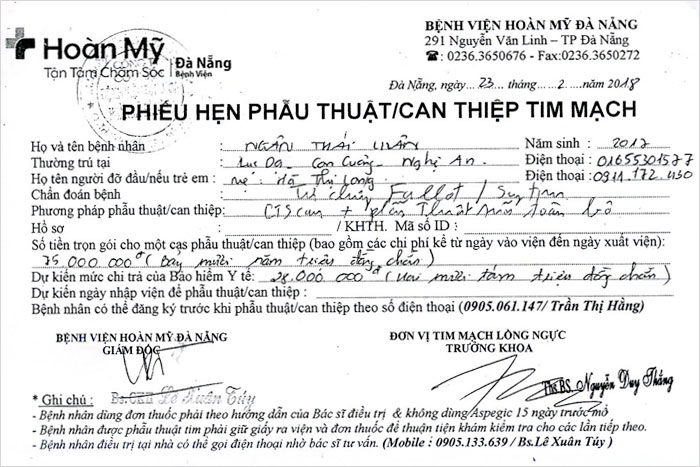 Hoàn Mỹ Đà Nẵng
Tận Tâm Chăm Sóc Bệnh Viện
BỆNH VIỆN HOÀN MỸ ĐÀ NẴNG
291 Nguyễn Văn Linh – TP Đà Nẵng
☎: 0236.3650676 - Fax:0236.3650272
Đà Nẵng, ngày... 23 ...tháng... 2 ...năm 2018
PHIẾU HẸN PHẪU THUẬT/CAN THIỆP TIM MẠCH
Họ và tên bệnh nhân : NGÂN THÁI Năm sinh : 2017
Thường trú tại : Lục Dạ - Con Cuông - Nghệ An. Điện thoại : 01655301577
Họ tên người đỡ đầu/nếu trẻ em : mẹ: Hà Thị Long Điện thoại : 0911.172.430
Chẩn đoán bệnh : Tứ chứng Fallot / Suy tim
Phương pháp phẫu thuật/can thiệp: CTScan + phẫu thuật sửa toàn bộ
Hồ sơ : / KHTH. Mã số ID :
Số tiền trọn gói cho một ca phẫu thuật/can thiệp (bao gồm các chi phí kể từ ngày vào viện đến ngày xuất viện):
75.000.000đ (Bảy mươi năm triệu đồng chẵn)
Dự kiến mức chi trả của Bảo hiểm Y tế: 28.000.000đ (Hai mươi tám triệu đồng chẵn)
Dự kiến ngày nhập viện để phẫu thuật/can thiệp :
Bệnh nhân có thể đăng ký trước khi phẫu thuật/can thiệp theo số điện thoại (0905.061.147/ Trần Thị Hằng)
BỆNH VIỆN HOÀN MỸ ĐÀ NẴNG
GIÁM ĐỐC
ĐƠN VỊ TIM MẠCH LỒNG NGỰC
TRƯỞNG KHOA
Lê Xuân Túy
Ths BS. Nguyễn Duy Thắng
* Ghi chú :
- Bệnh nhân dùng đơn thuốc phải theo hướng dẫn của Bác sĩ điều trị & không dùng Aspegic 15 ngày trước mổ
- Bệnh nhân được phẫu thuật tim phải giữ giấy ra viện và đơn thuốc để thuận tiện khám kiểm tra cho các lần tiếp theo.
- Bệnh nhân điều trị tại nhà có thể gọi điện thoại nhờ bác sĩ tư vấn. (Mobile : 0905.133.639 / Bs.Lê Xuân Túy )